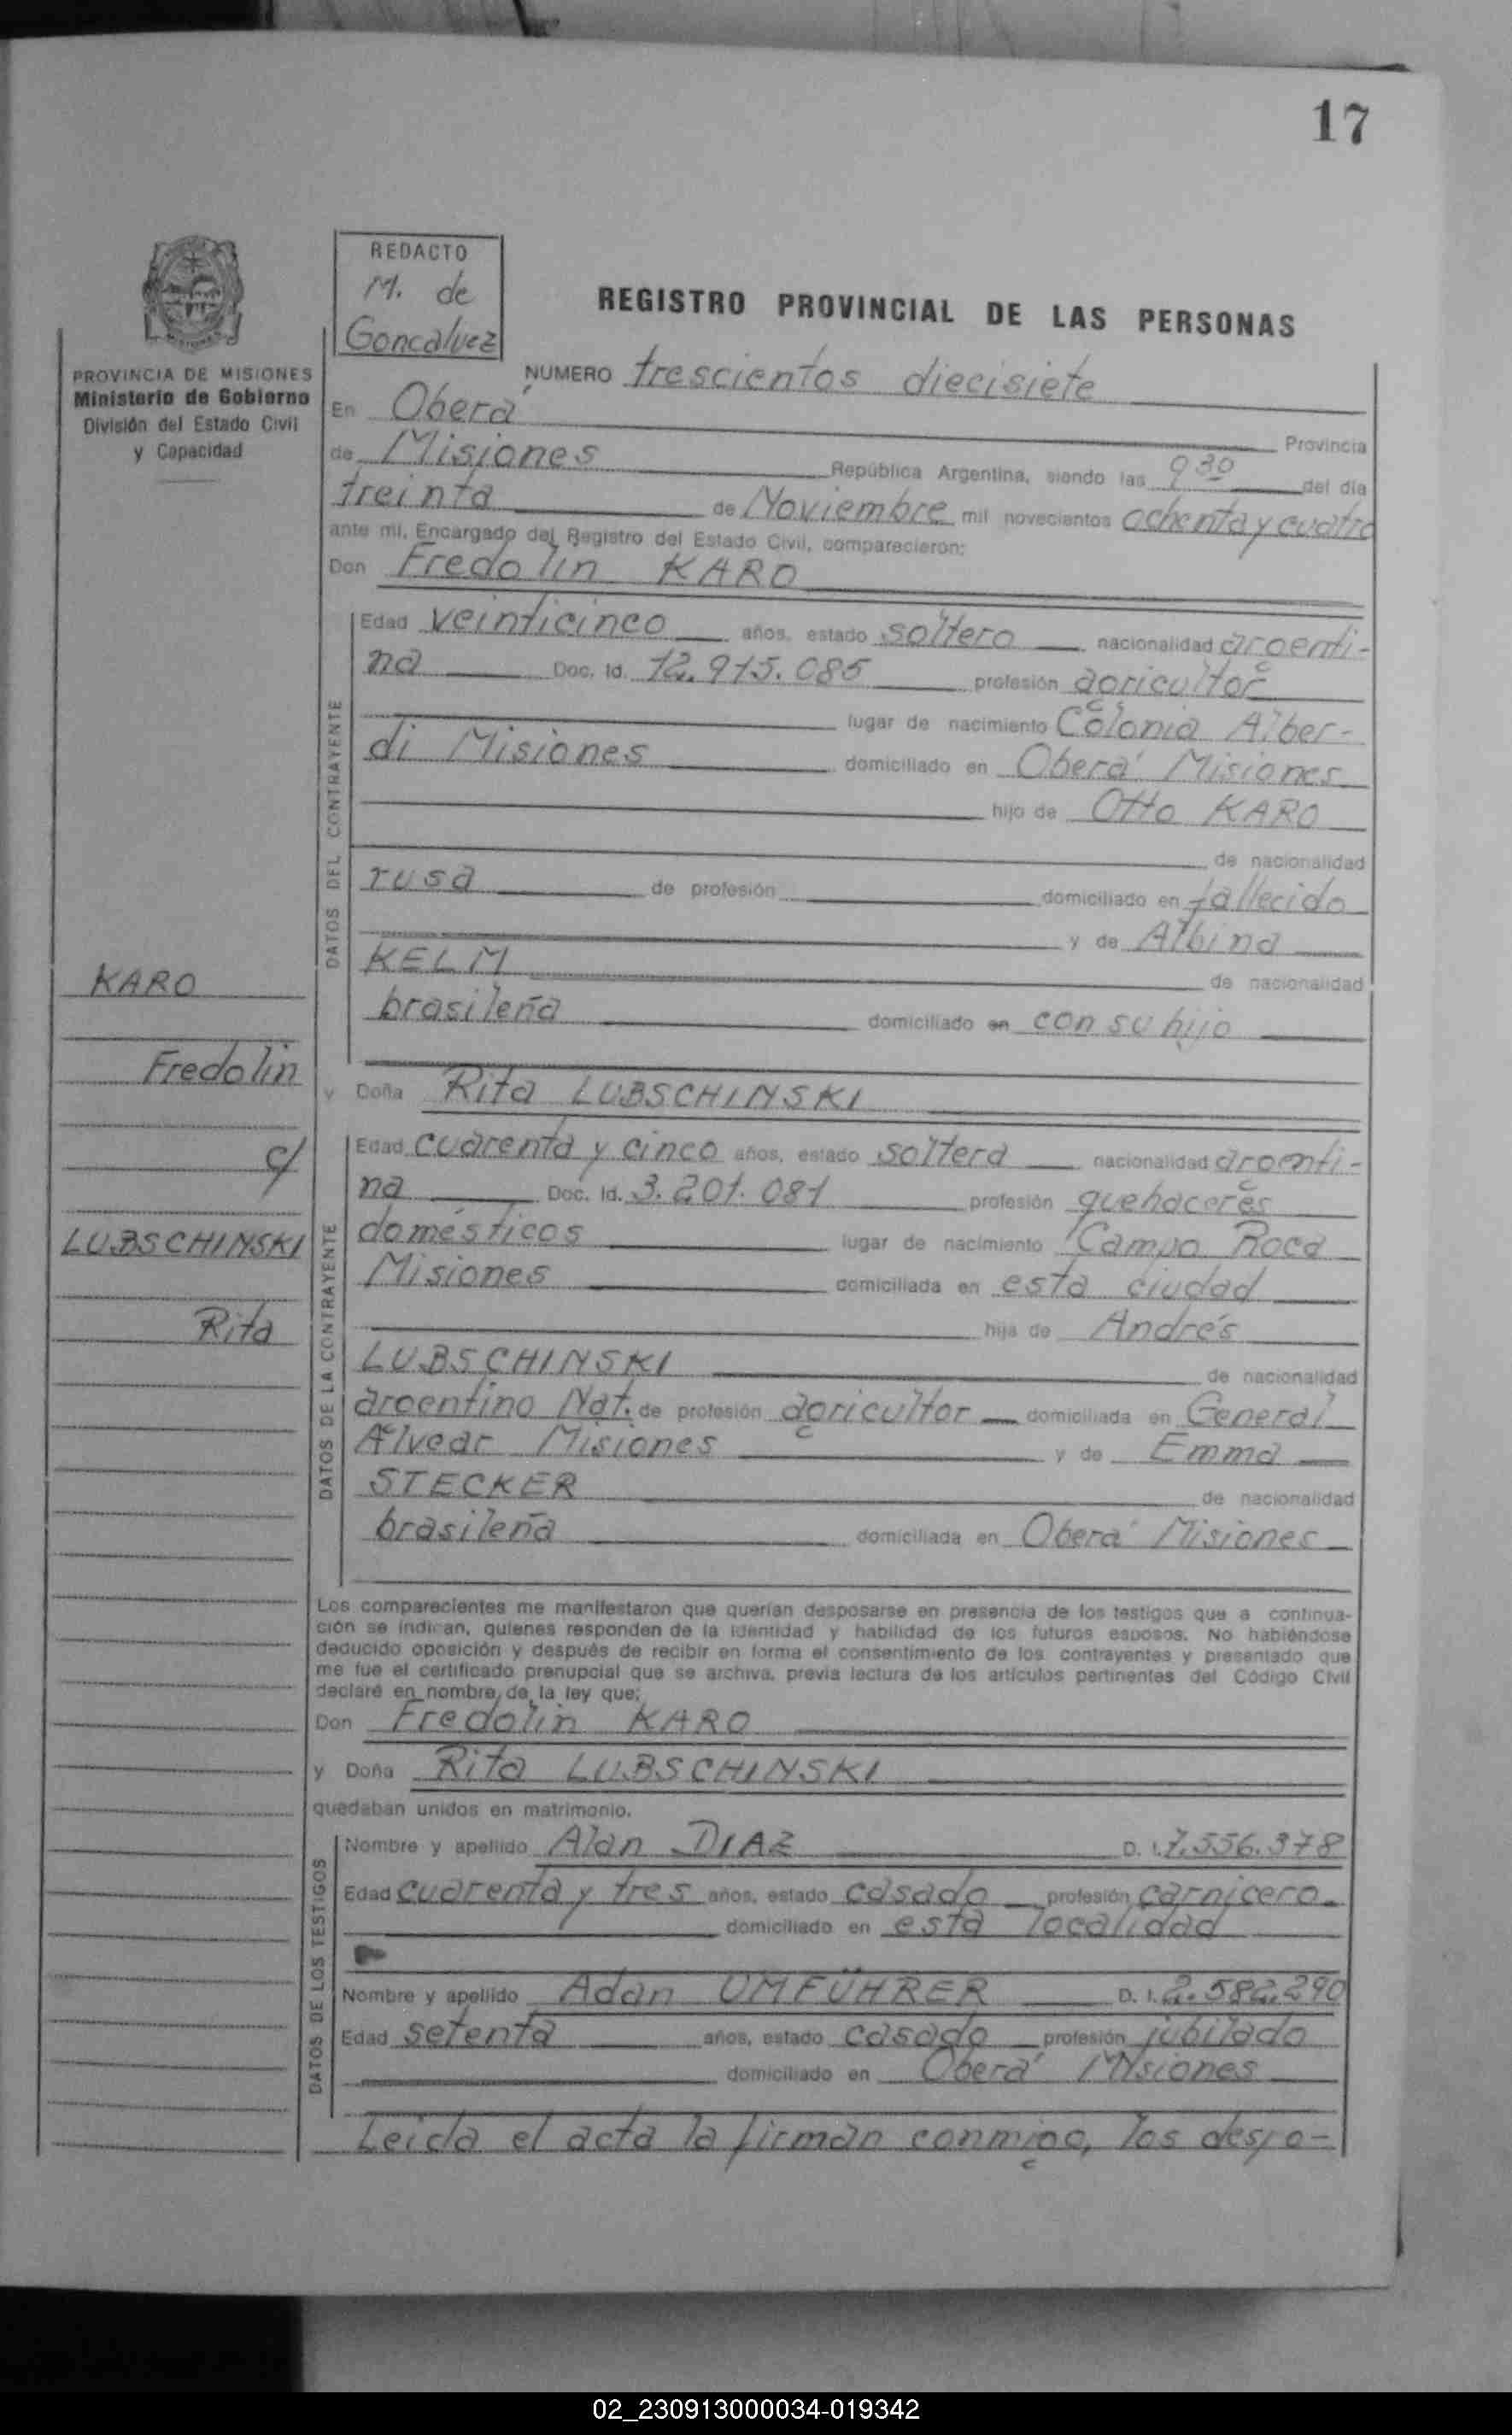 17
REDACTO
M. de
Goncalvez
REGISTRO PROVINCIAL DE LAS PERSONAS
PROVINCIA DE MISIONES
Ministerio de Gobierno
División del Estado Civil
y Capacidad
NUMERO trescientos diecisiete
En Oberá Provincia
de Misiones República Argentina, siendo las 9 30 del día
treinta de Noviembre mil novecientos ochenta y cuatro
ante mí, Encargado del Registro del Estado Civil, comparecieron:
Don Fredolin KARO
DATOS DEL CONTRAYENTE
Edad veinticinco años, estado soltero nacionalidad argenti-
na Doc. Id. 12.915.085 profesión agricultor
lugar de nacimiento Colonia Alber-
di Misiones domiciliado en Oberá Misiones
hijo de Otto KARO
de nacionalidad
rusa de profesión domiciliado en fallecido
y de Albina
KELM de nacionalidad
brasileña domiciliado en con su hijo
KARO
Fredolin
c/
LUBSCHINSKI
Rita
y Doña Rita LUBSCHINSKI
DATOS DE LA CONTRAYENTE
Edad cuarenta y cinco años, estado soltera nacionalidad argenti-
na Doc. Id. 3.201.081 profesión quehaceres
domésticos lugar de nacimiento Campo Roca
Misiones domiciliada en esta ciudad
hija de Andrés
LUBSCHINSKI de nacionalidad
argentino Nat. de profesión agricultor domiciliada en General
Alvear Misiones y de Emma
STECKER de nacionalidad
brasileña domiciliada en Oberá Misiones
Los comparecientes me manifestaron que querían desposarse en presencia de los testigos que a continua-
ción se indican, quienes responden de la identidad y habilidad de los futuros esposos. No habiéndose
deducido oposición y después de recibir en forma el consentimiento de los contrayentes y presentado que
me fue el certificado prenupcial que se archiva, previa lectura de los artículos pertinentes del Código Civil
declaré en nombre de la ley que:
Don Fredolin KARO
y Doña Rita LUBSCHINSKI
quedaban unidos en matrimonio.
DATOS DE LOS TESTIGOS
Nombre y apellido Alan DIAZ D. I. 7.556.378
Edad cuarenta y tres años, estado casado profesión carnicero
domiciliado en esta localidad
Nombre y apellido Adan UMFÜHRER D. I. 2.582.290
Edad setenta años, estado casado profesión jubilado
domiciliado en Oberá Misiones
Leida el acta la firman conmigo, los despo-
02_230913000034-019342